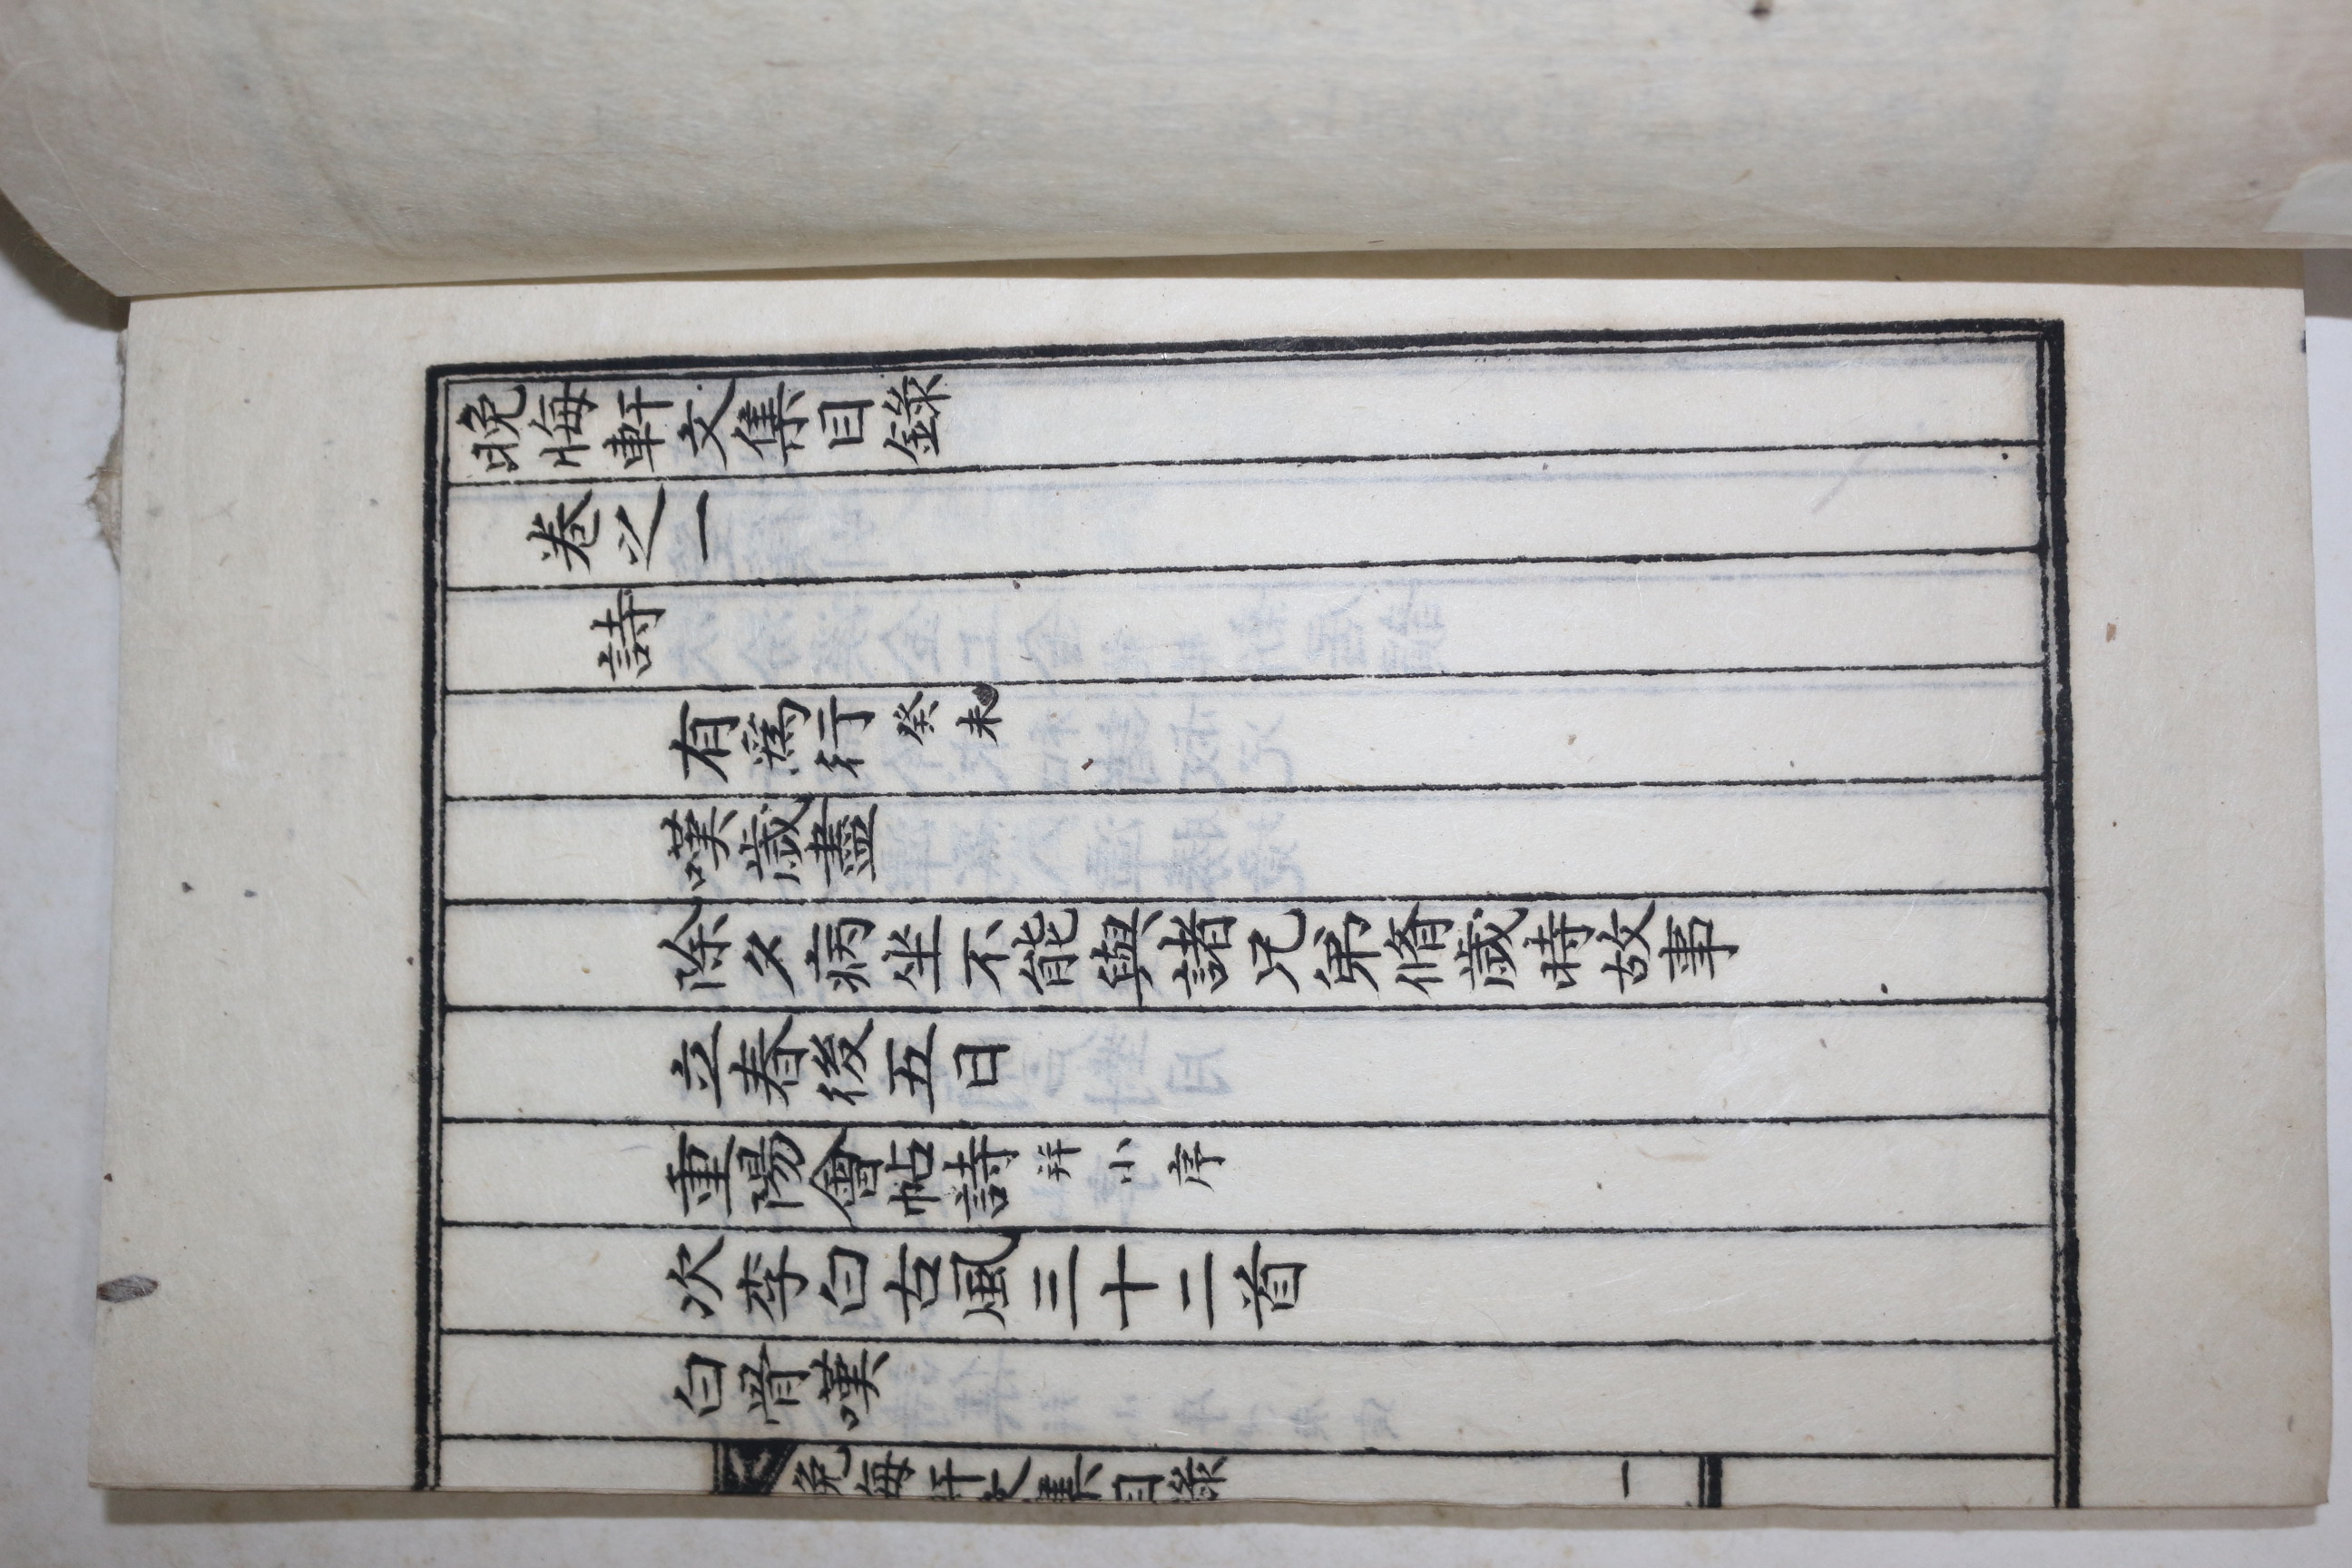 晩悔軒文集目錄
卷之一
詩
有爲行癸未
嘆歲盡
除夕病坐不能與諸兄弟脩歲時故事
立春後五日
重陽會帖詩并小序
次李白古風三十二首
白骨嘆
晩悔軒文集目錄 一